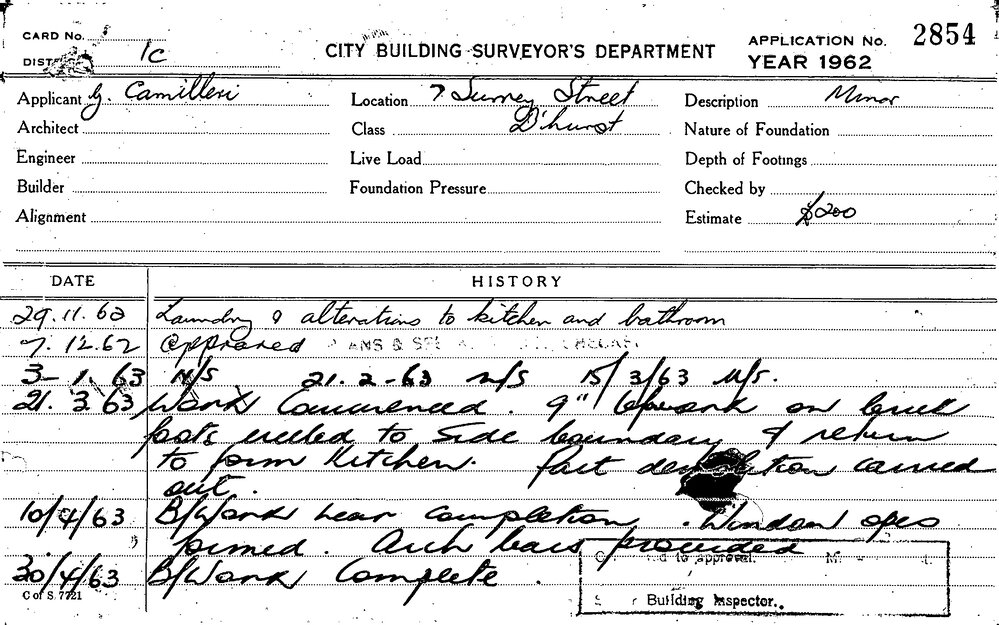 CARD No.
2854
CITY BUILDING SURVEYOR'S DEPARTMENT
APPLICATION No.
DIST 1c
YEAR 1962
Applicant G. Camilleri
Location 7 Surrey Street
Description Minor
Architect
Class D'hurst
Nature of Foundation
Engineer
Live Load
Depth of Footings
Builder
Foundation Pressure
Checked by
Alignment
Estimate $200
DATE HISTORY
29.11.62 Laundry & alterations to kitchen and bathroom
7.12.62 Approved
3-1.63 N/S 21.2-63 N/S 15/3/63 N/S.
21.3.63 Work Commenced. 9" b/work on brick
foots erected to side boundary & return
to form Kitchen. Part demolition carried
out.
10/4/63 B/Work near completion. Window opes
formed. Arch bars provided
30/4/63 B/Work Complete.
to approval.
C of S. 7721
Building Inspector.